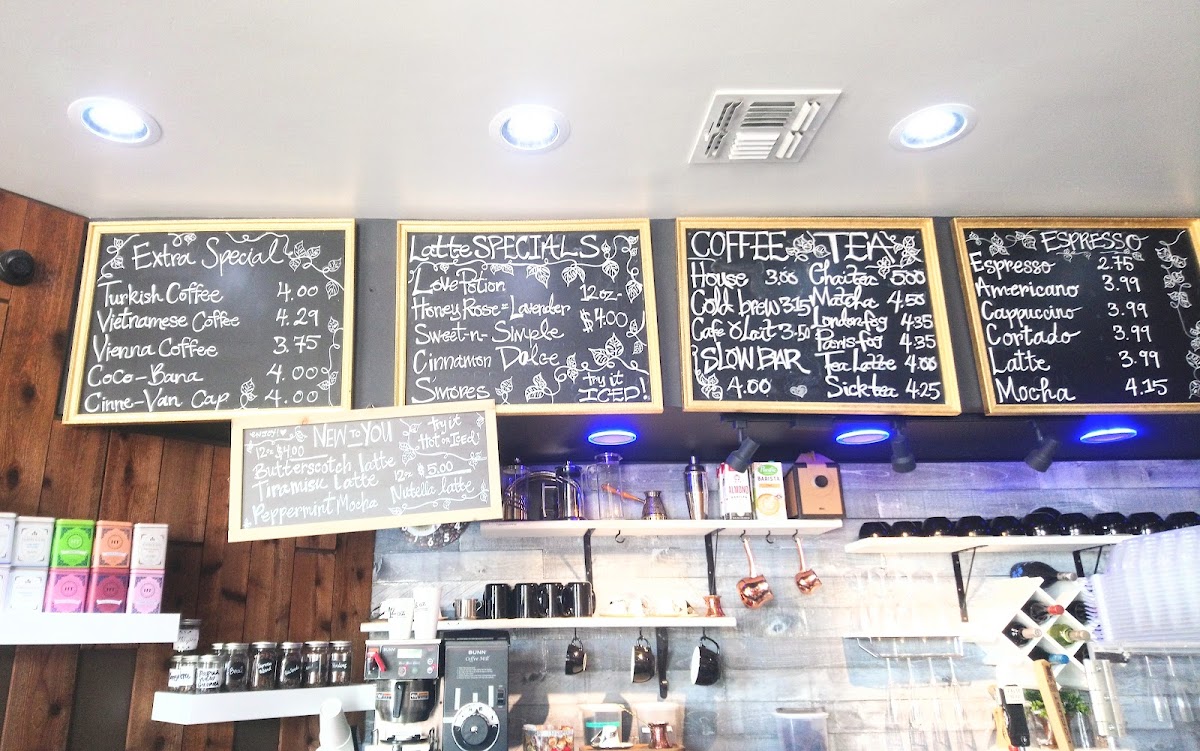 Extra Special
Turkish Coffee 4.00
Vietnamese Coffee 4.29
Vienna Coffee 3.75
Coco-Bana 4.00
Cinne-Van Cap 4.00
Latte SPECIALS
Love Potion
Honey Rose = Lavender
Sweet-n-Simple
Cinnamon Dolce
Smores
12oz-
$4.00
try it
ICED!
COFFEE
House 3.00
Cold brew 3.75
Cafe O Lait 3.50
SLOW BAR
4.00
TEA
Chaitea 5.00
Matcha 4.50
London-fog 4.35
Paris-fog 4.35
Tea Latte 4.00
Sicktea 4.25
ESPRESSO
Espresso 2.75
Americano 3.99
Cappuccino 3.99
Cortado 3.99
Latte 3.99
Mocha 4.15
ENJOY!
NEW to YOU
12oz $4.00
Butterscotch latte
Tiramisu Latte
Peppermint Mocha
try it
Hot or Iced!
12oz $5.00
Nutella latte
ALMOND
BARISTA
BUNN
BUNN
Coffee Mill